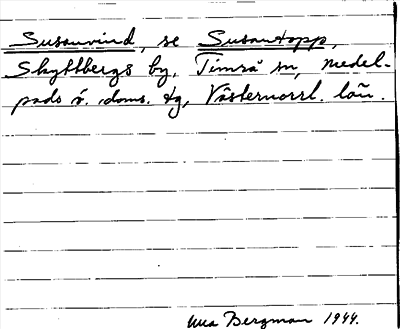 Susanvind, se Susantopp,
Skyttbergs by, Timrå sn, Medel-
pads ö. doms. tg, Västernorrl. län.
Una Bergman 1944.